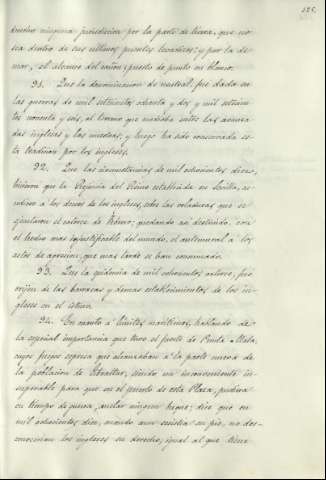 derecho ninguna jurisdiccion por la parte de tierra, que no
sea dentro de sus ultimos puentes levadizos: y por la de
mar, el alcance del cañon, puesto de punto en blanco.
91. Que la denominacion de neutral fue dada en
las guerras de mil setecientos ochenta y dos y mil setecien-
tos noventa y seis, al terreno que mediaba entre las avanza-
das inglesas y las nuestras, y luego ha sido conservada es-
ta tradicion por los ingleses.
92. Que las circunstancias de mil ochocientos diez,
hicieron que la Regencia del Reino establecida en
cediera a los deseos de los ingleses, sobre las voladuras que se
ejecutaron el catorce de quedando así destruido, con
el hecho mas injustificable del mundo, el antemural a los
actos de agresion, que mas tarde se han consumado.
93. Que la epidemia de mil ochocientos catorce, fué
origen de las barracas y demas establecimientos de los in-
gleses en el istmo.
94. En cuanto á limites maritimos, hablando de
la especial importancia que tuvo el fuerte de Punta Mala,
cuyos fuegos expresa que alcanzaban á la parte nueva de
la poblacion de Gibraltar, siendo un inconveniente in-
superable para que en el puerto de esta Plaza, pudiera
en tiempo de guerra, anclar ningun buque; dice que en
mil ochocientos diez, cuando aun existia en pie, no des-
conocian los ingleses su derecho, igual al que tiene